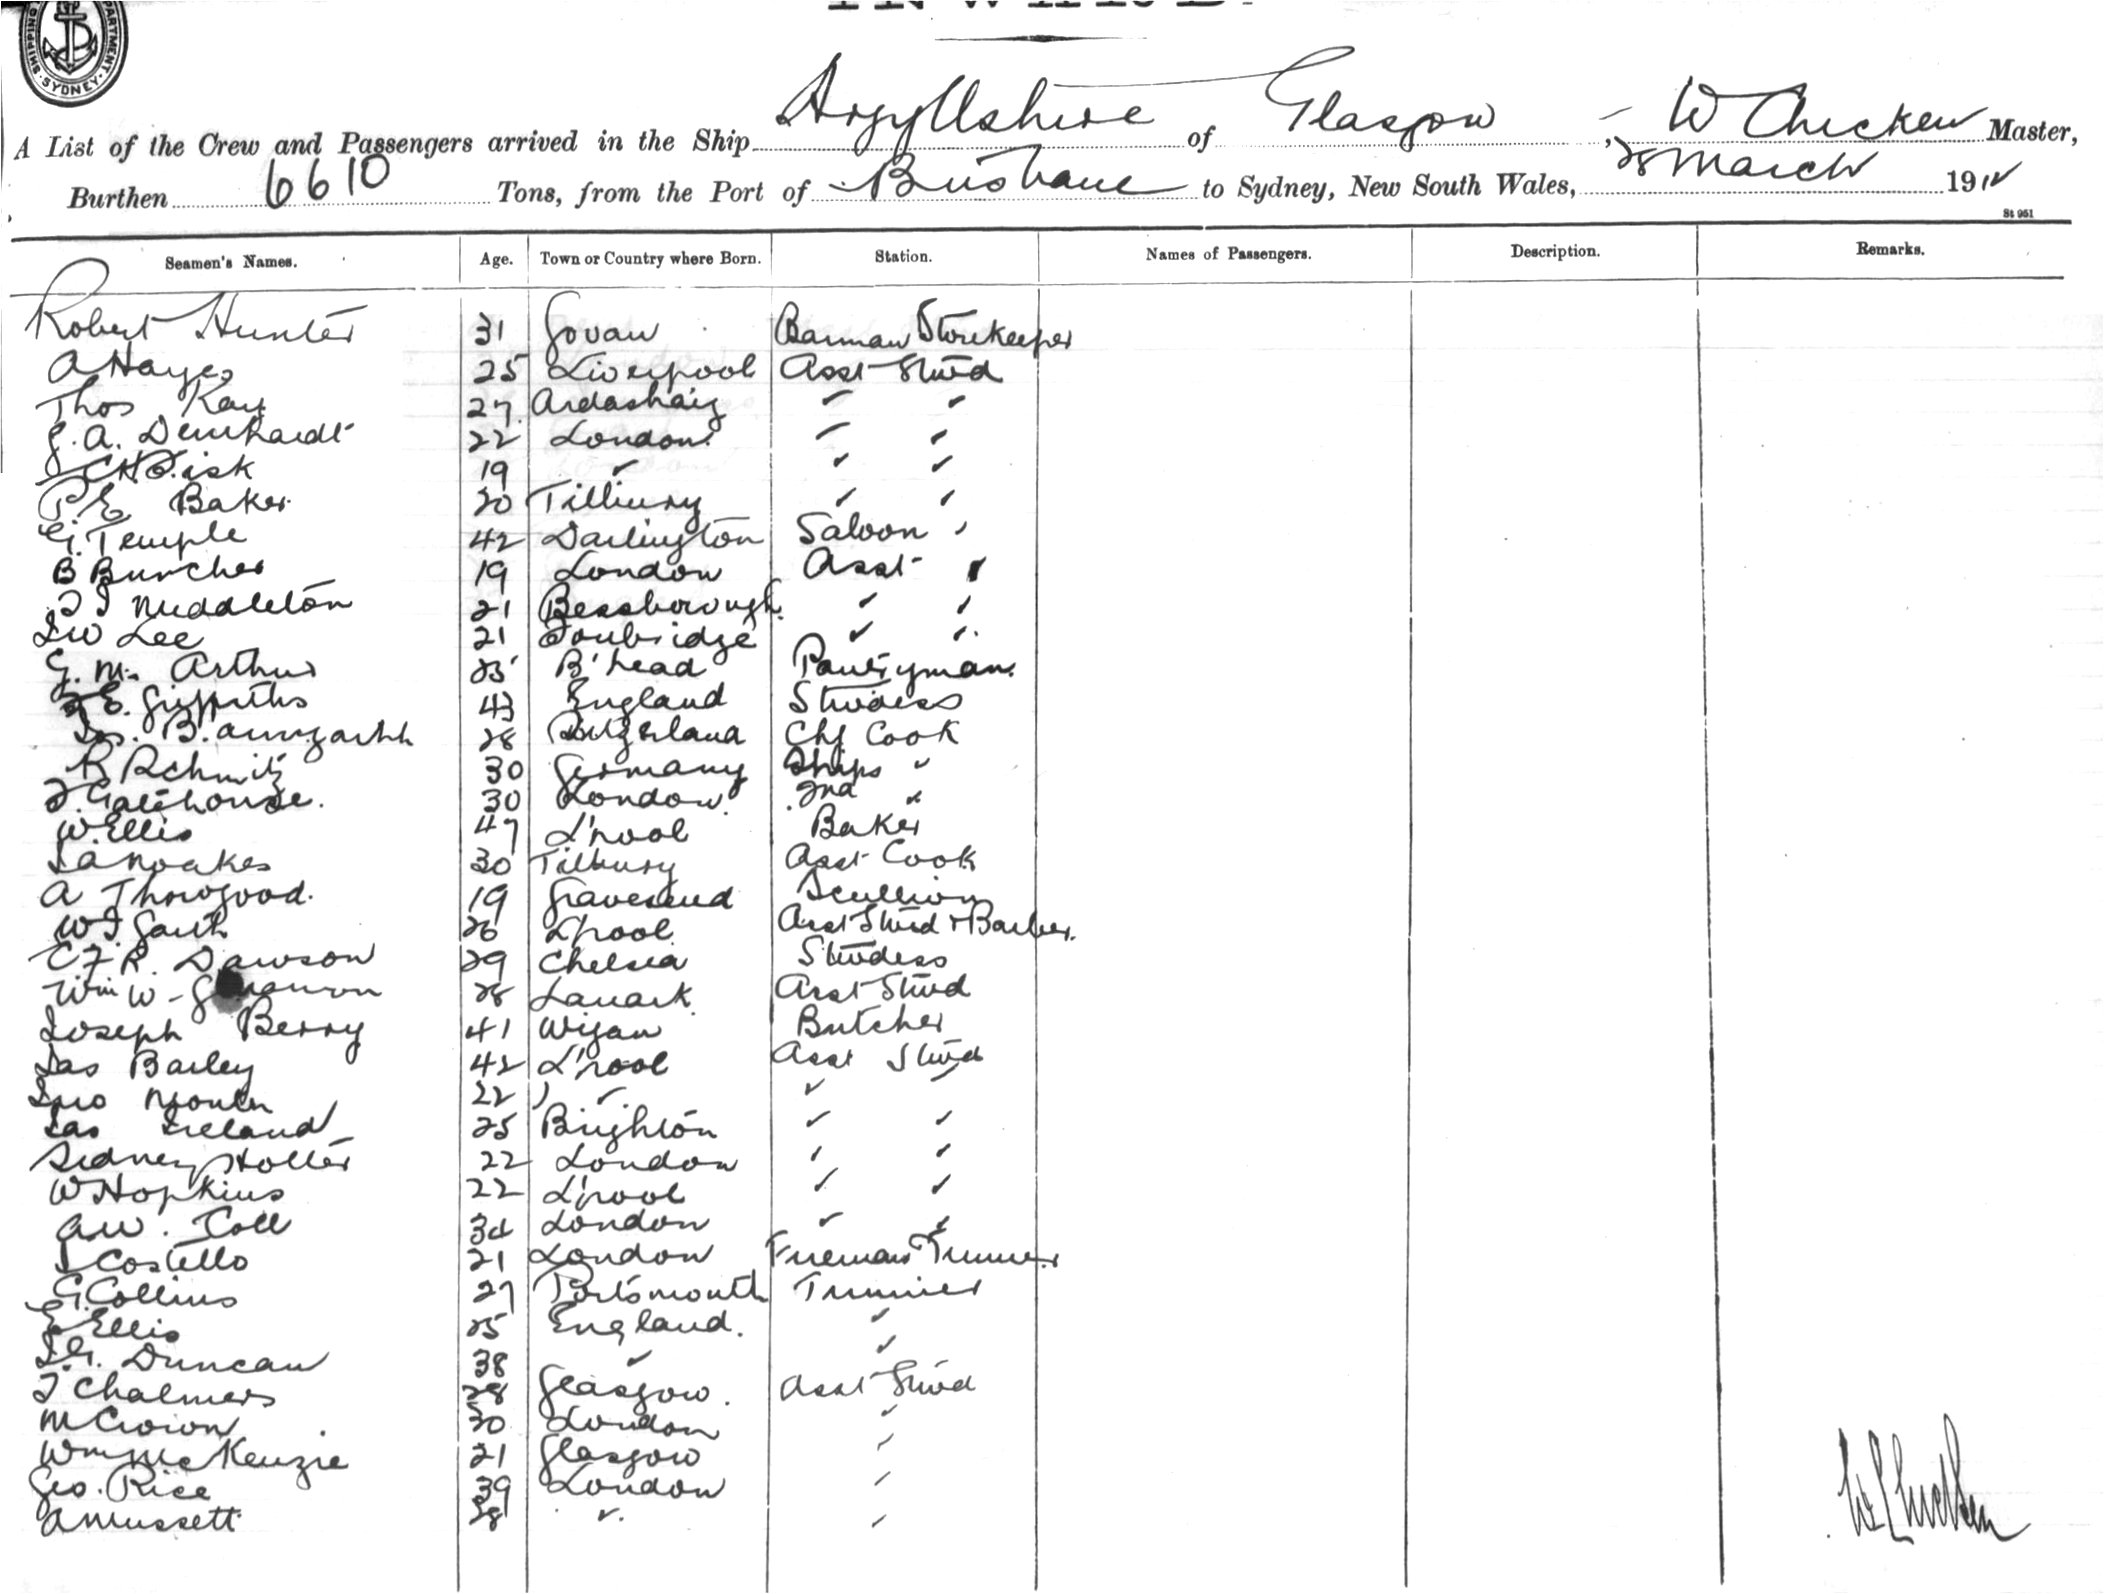 SHIPPING DEPARTMENT. SYDNEY.
INWARD.
A List of the Crew and Passengers arrived in the Ship Argyllshire of Glasgow, W Chicken Master,
Burthen 6610 Tons, from the Port of Brisbane to Sydney, New South Wales, 28 March 1912
St 951
Seamen's Names. Age. Town or Country where Born. Station. Names of Passengers. Description. Remarks.
Robert Hunter 31 Govan Barman Storekeeper
A Hayes 25 Liverpool Asst Stwd
Thos Kay 27 Ardashaig " "
G. A. Deinhardt 22 London " "
19 " " "
P E Baker 20 Tilbury " "
G. Temple 42 Darlington Saloon "
B Buncher 19 London Asst "
Middleton 21 Bessborough " "
Lee 21 Tonbridge " "
G. M. Arthur 25 B'head Pantryman
E. Griffiths 43 England Stwdess
28 Switzerland Chf Cook
R Schmitz 30 Germany Ships "
Gatehouse. 30 London 2nd "
W. Ellis 47 L'pool Baker
Noakes 30 Tilbury Asst Cook
A Thorogood. 19 Gravesend Scullion
26 L'pool Asst Stwd & Barber
C. F. R. Dawson 29 Chelsea Stwdess
Wm W 28 Lanark Asst Stwd
Joseph Berry 41 Wigan Butcher
Jas Bailey 42 L'pool Asst Stwd
Jno 22 " " "
Jas Ireland 25 Brighton " "
Sidney Holter 22 London " "
W Hopkins 22 L'pool " "
A. W. Toll 34 London " "
J Costello 21 London Fireman Trimmer
G. Collins 27 Portsmouth Trimmer
E Ellis 25 England. "
J. G. Duncan 38 " "
J Chalmers 28 Glasgow. Asst Stwd
M Crown 30 London "
Wm McKenzie 21 Glasgow "
Geo. Rice 39 London "
A Mussett 38 " "
W Chicken